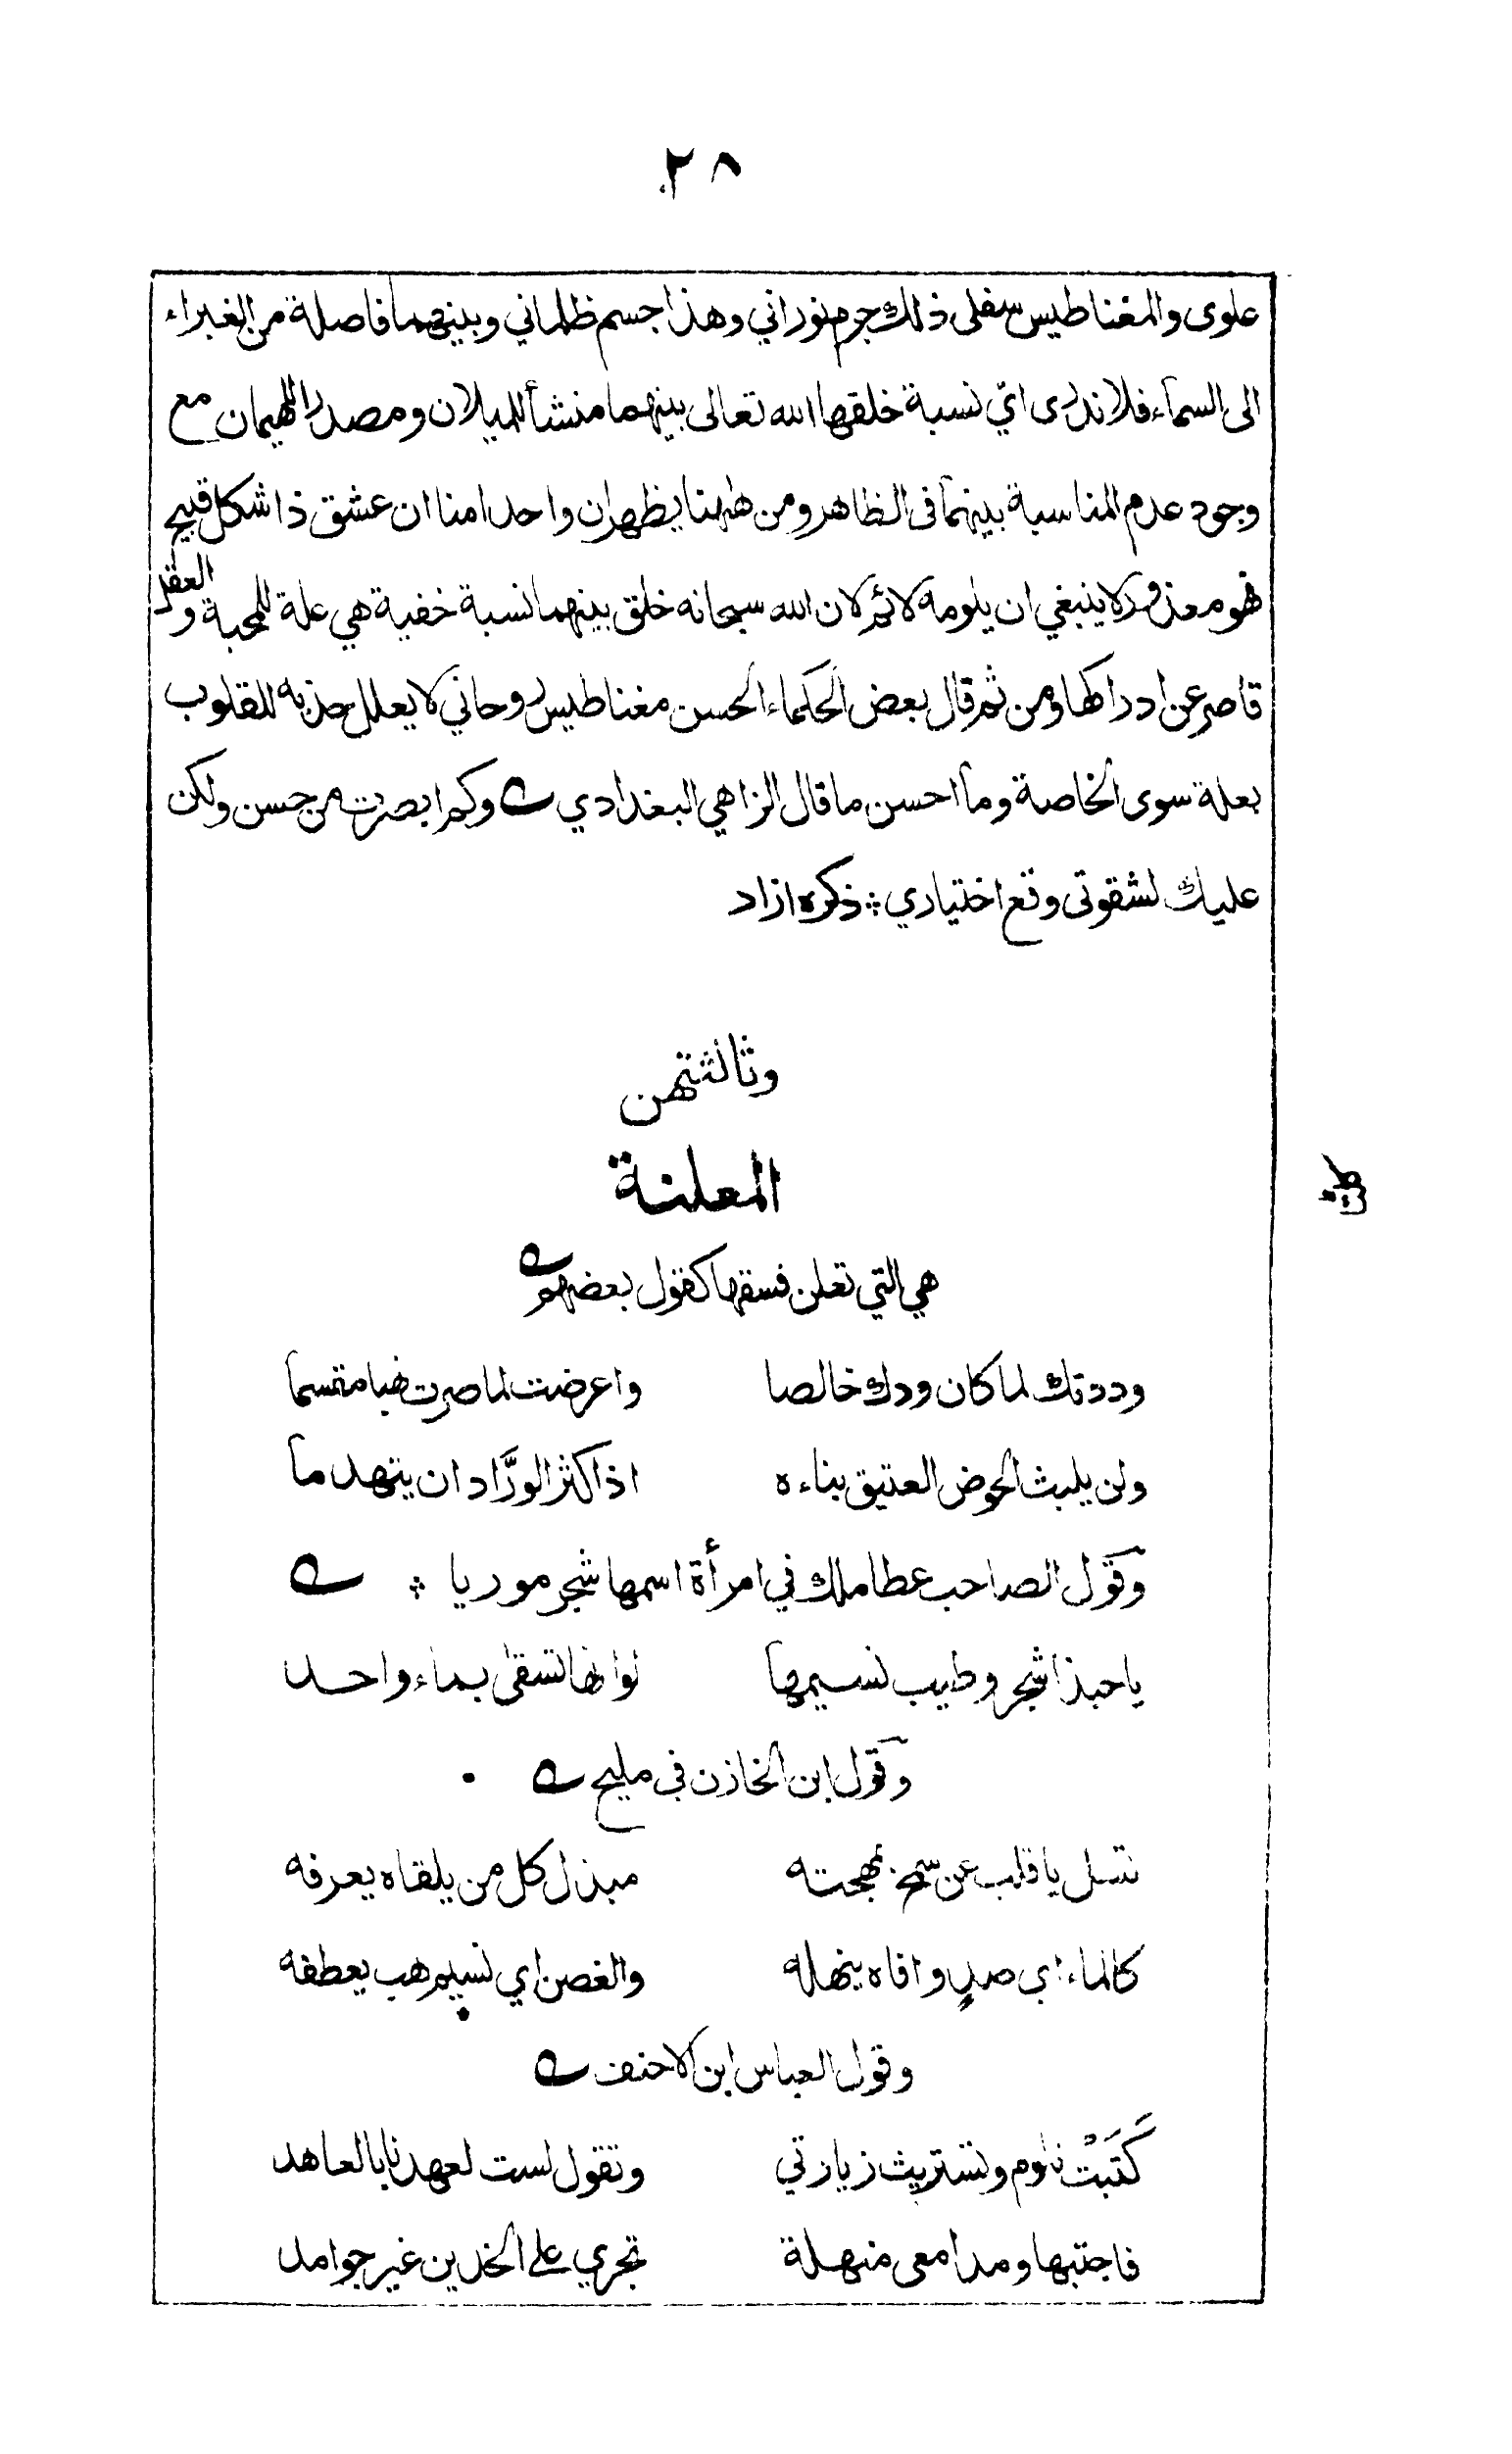 ٢٨
علوى والمغناطيس سفلى ذلك جرم نوراني وهذا جسم ظلماني وبينهما فاصلة من الغبراء
الى السمآء فلا ندرى اىّ نسبة خلقها الله تعالى بينهما منشأ للميلان ومصدرا للهيمان مع
وجود عدم المناسبة بينهما فى الظاهر ومن ههنا يظهر ان واحدا منا ان عشق ذا شكل قبيح
فهو معذور لا ينبغي ان يلومه لائم لان الله سبحانه خلق بينهما نسبة خفية هي علة للمحبة و العقل
قاصر عن ادراكها ومن ثم قال بعض الحكماء الحسن مغناطيس روحاني لا يعلل جذبه للقلوب
بعلة سوى الخاصة وما احسن ما قال الزاهي البغدادي وكم ابصرت من حسن ولكن
عليك لشقوتى وقع اختياري ؞ ذكره ازاد
وثالثتهن
المعلنة
هي التي تعلن فسقها كقول بعضهم
وددتك لما كان ودك خالصا واعرضت لما صرت نهبا مقسما
ولن يلبث الحوض العتيق بناءه اذا كثر الورَّاد ان يتهدما
وقول الصاحب عطا ملك في امرأة اسمها شجر موريا ؞
يا حبذا شجر وطيب نسيمها لو انها تسقى بماء واحد
وقول ابن الخازن فى مليح
تسل يا قلب عن سمح بمهجته مبذل كل من يلقاه يعرفه
كالماء اى صدٍ وافاه ينهله والغصن اي نسيم هب يعطفه
وقول العباس ابن الاحنف
كَتَبَتْ تلوم وتستريث زيارتي وتقول لست لعهدنا بالعاهد
فاجتبها ومدامعى منهلة تجري على الخدين غير جوامد